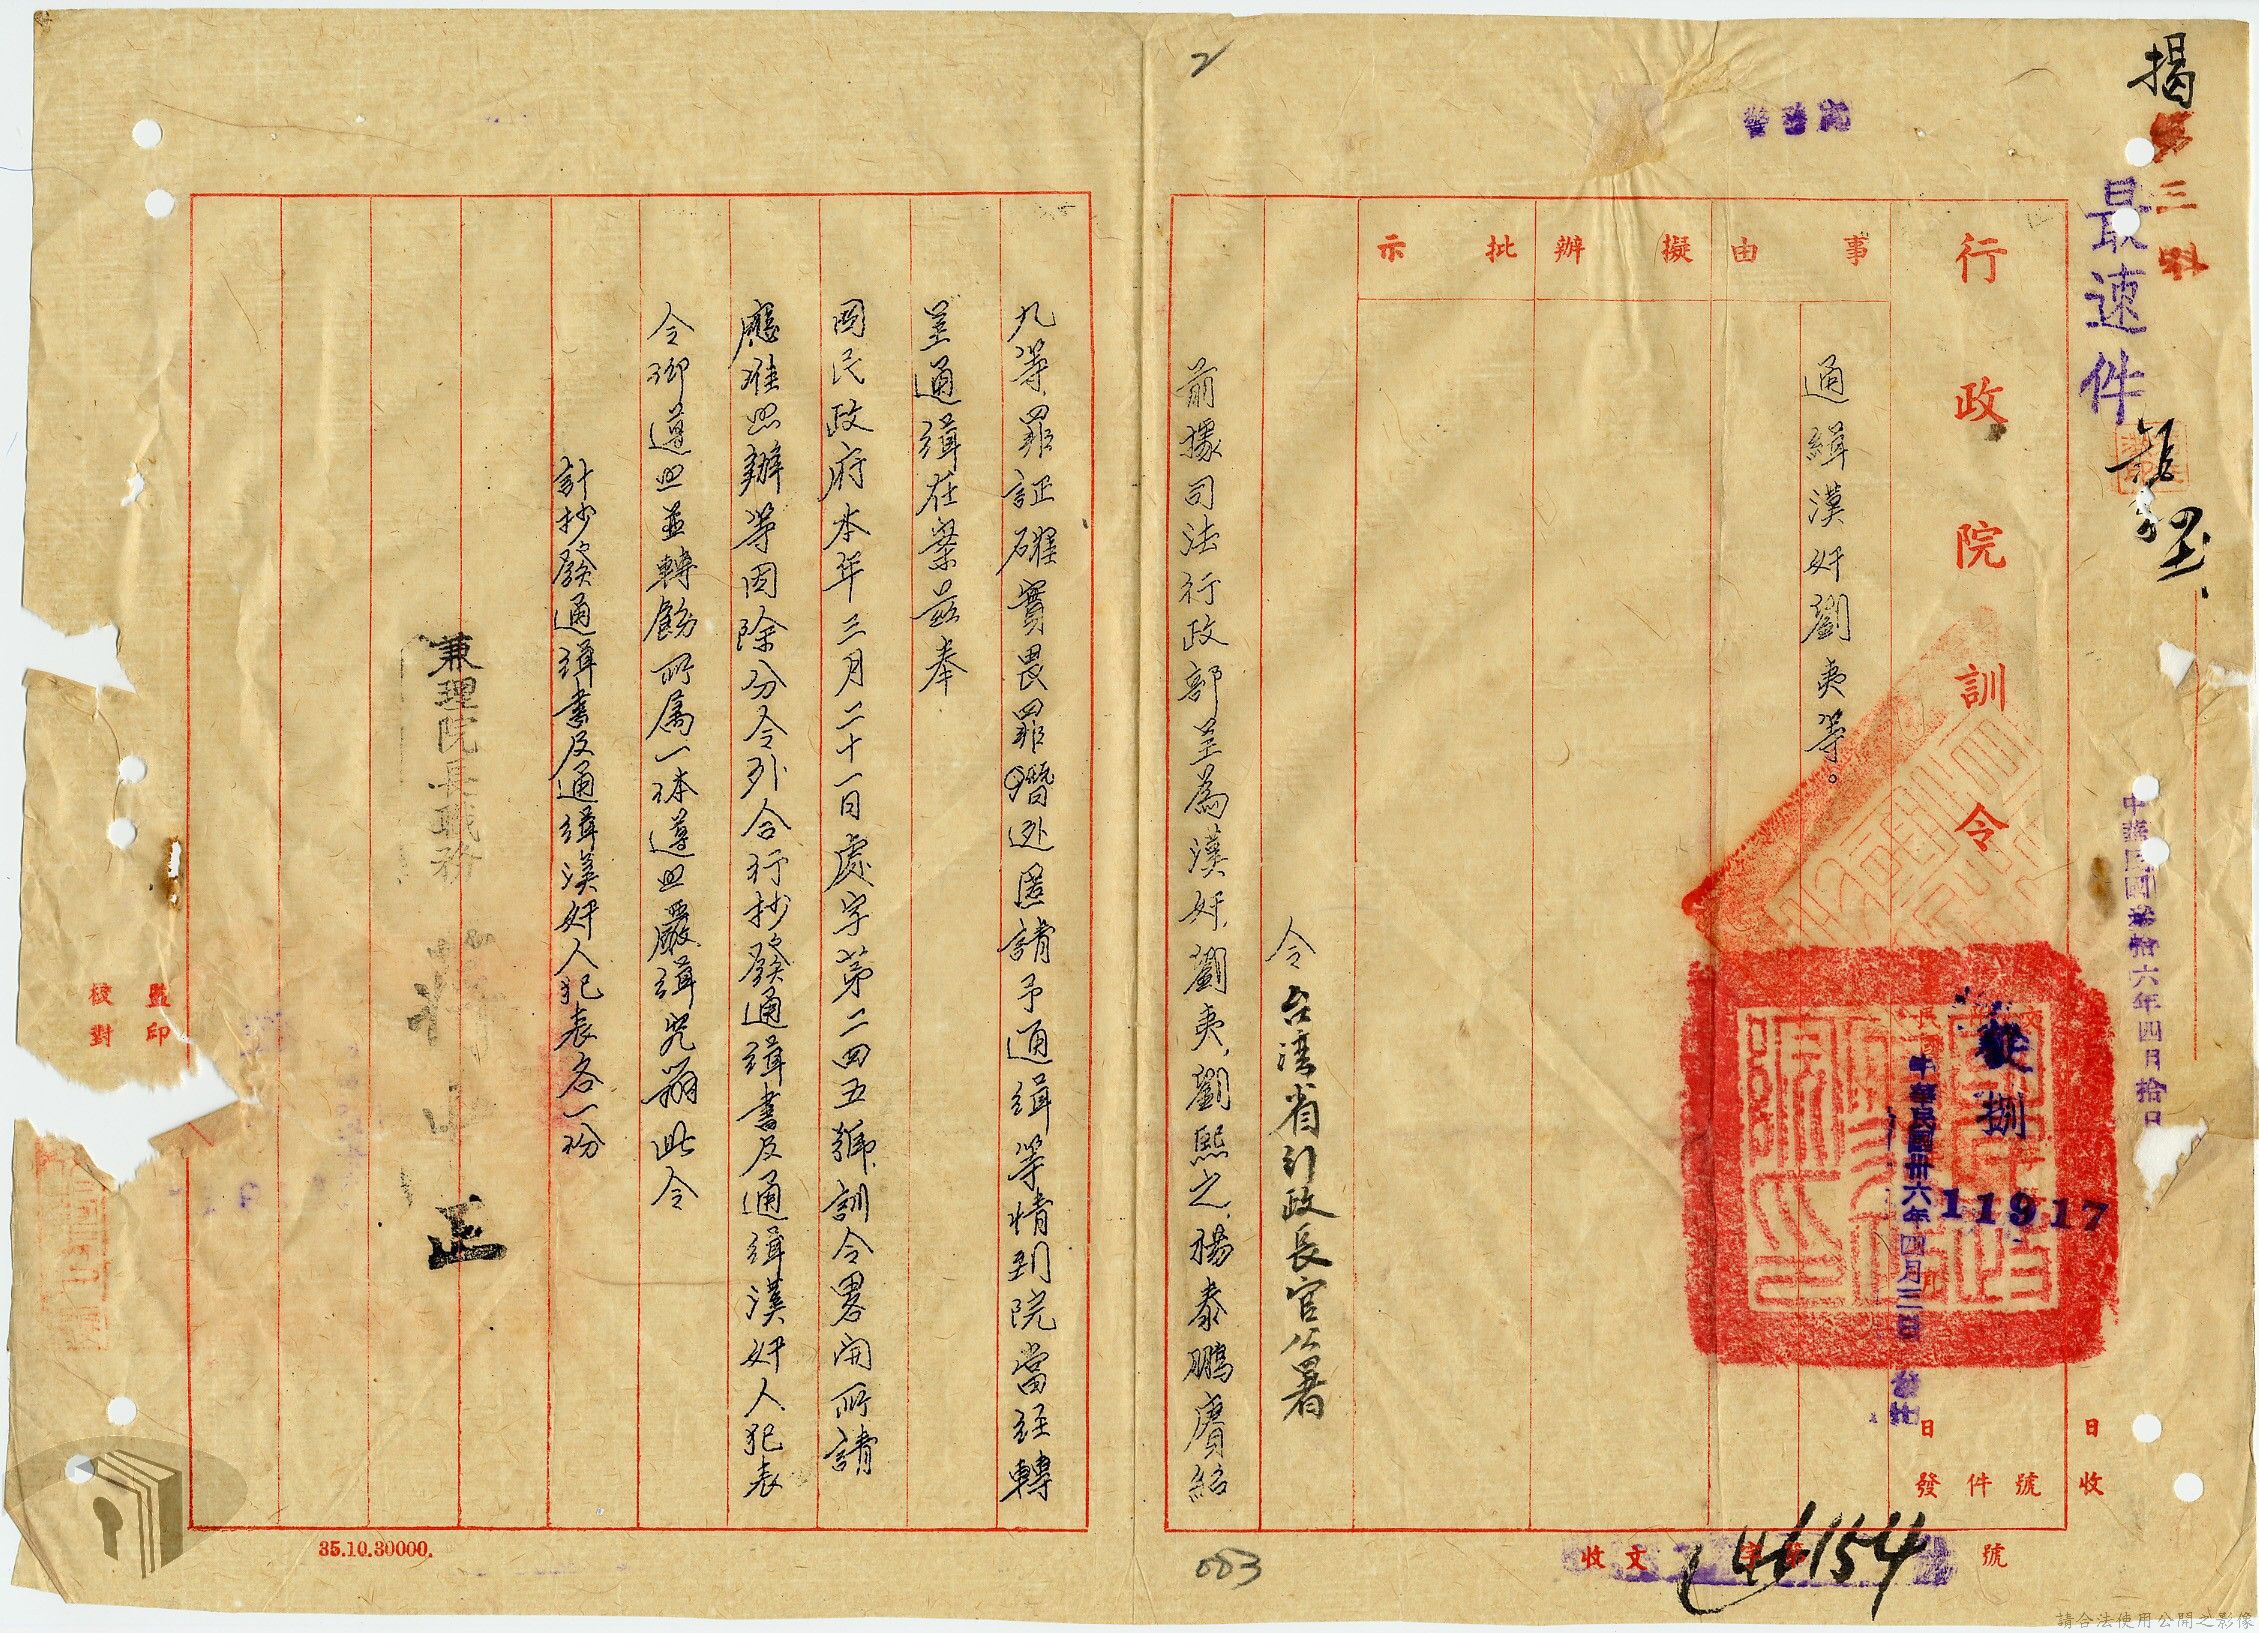 揭
第三科
最速件
警務處
2
行政院訓令
事由
擬辦
批示
通緝漢奸劉夷等。
中華民國叁拾六年四月拾日
從捌
11917
中華民國卅六年四月三日
發出
日收
日發
件號
令台湾省行政長官公署
前據司法行政部呈為漢奸劉夷、劉熙之、楊泰鵬、賡紹
九等罪証確實畏罪潛逃匿請予通緝等情到院當經轉
呈通緝在案茲奉
國民政府本年三月二十一日處字第二四五號訓令畧開所請
應准照辦等因除分令外合行抄發通緝書及通緝漢奸人犯表
令仰遵照並轉飭所属一体遵照嚴緝究辦此令
計抄發通緝書及通緝漢奸人犯表各一份
兼理院長職務 蔣中正
監印
校對
35.10.30000.
083
收文字第46154號
請合法使用公開之影像